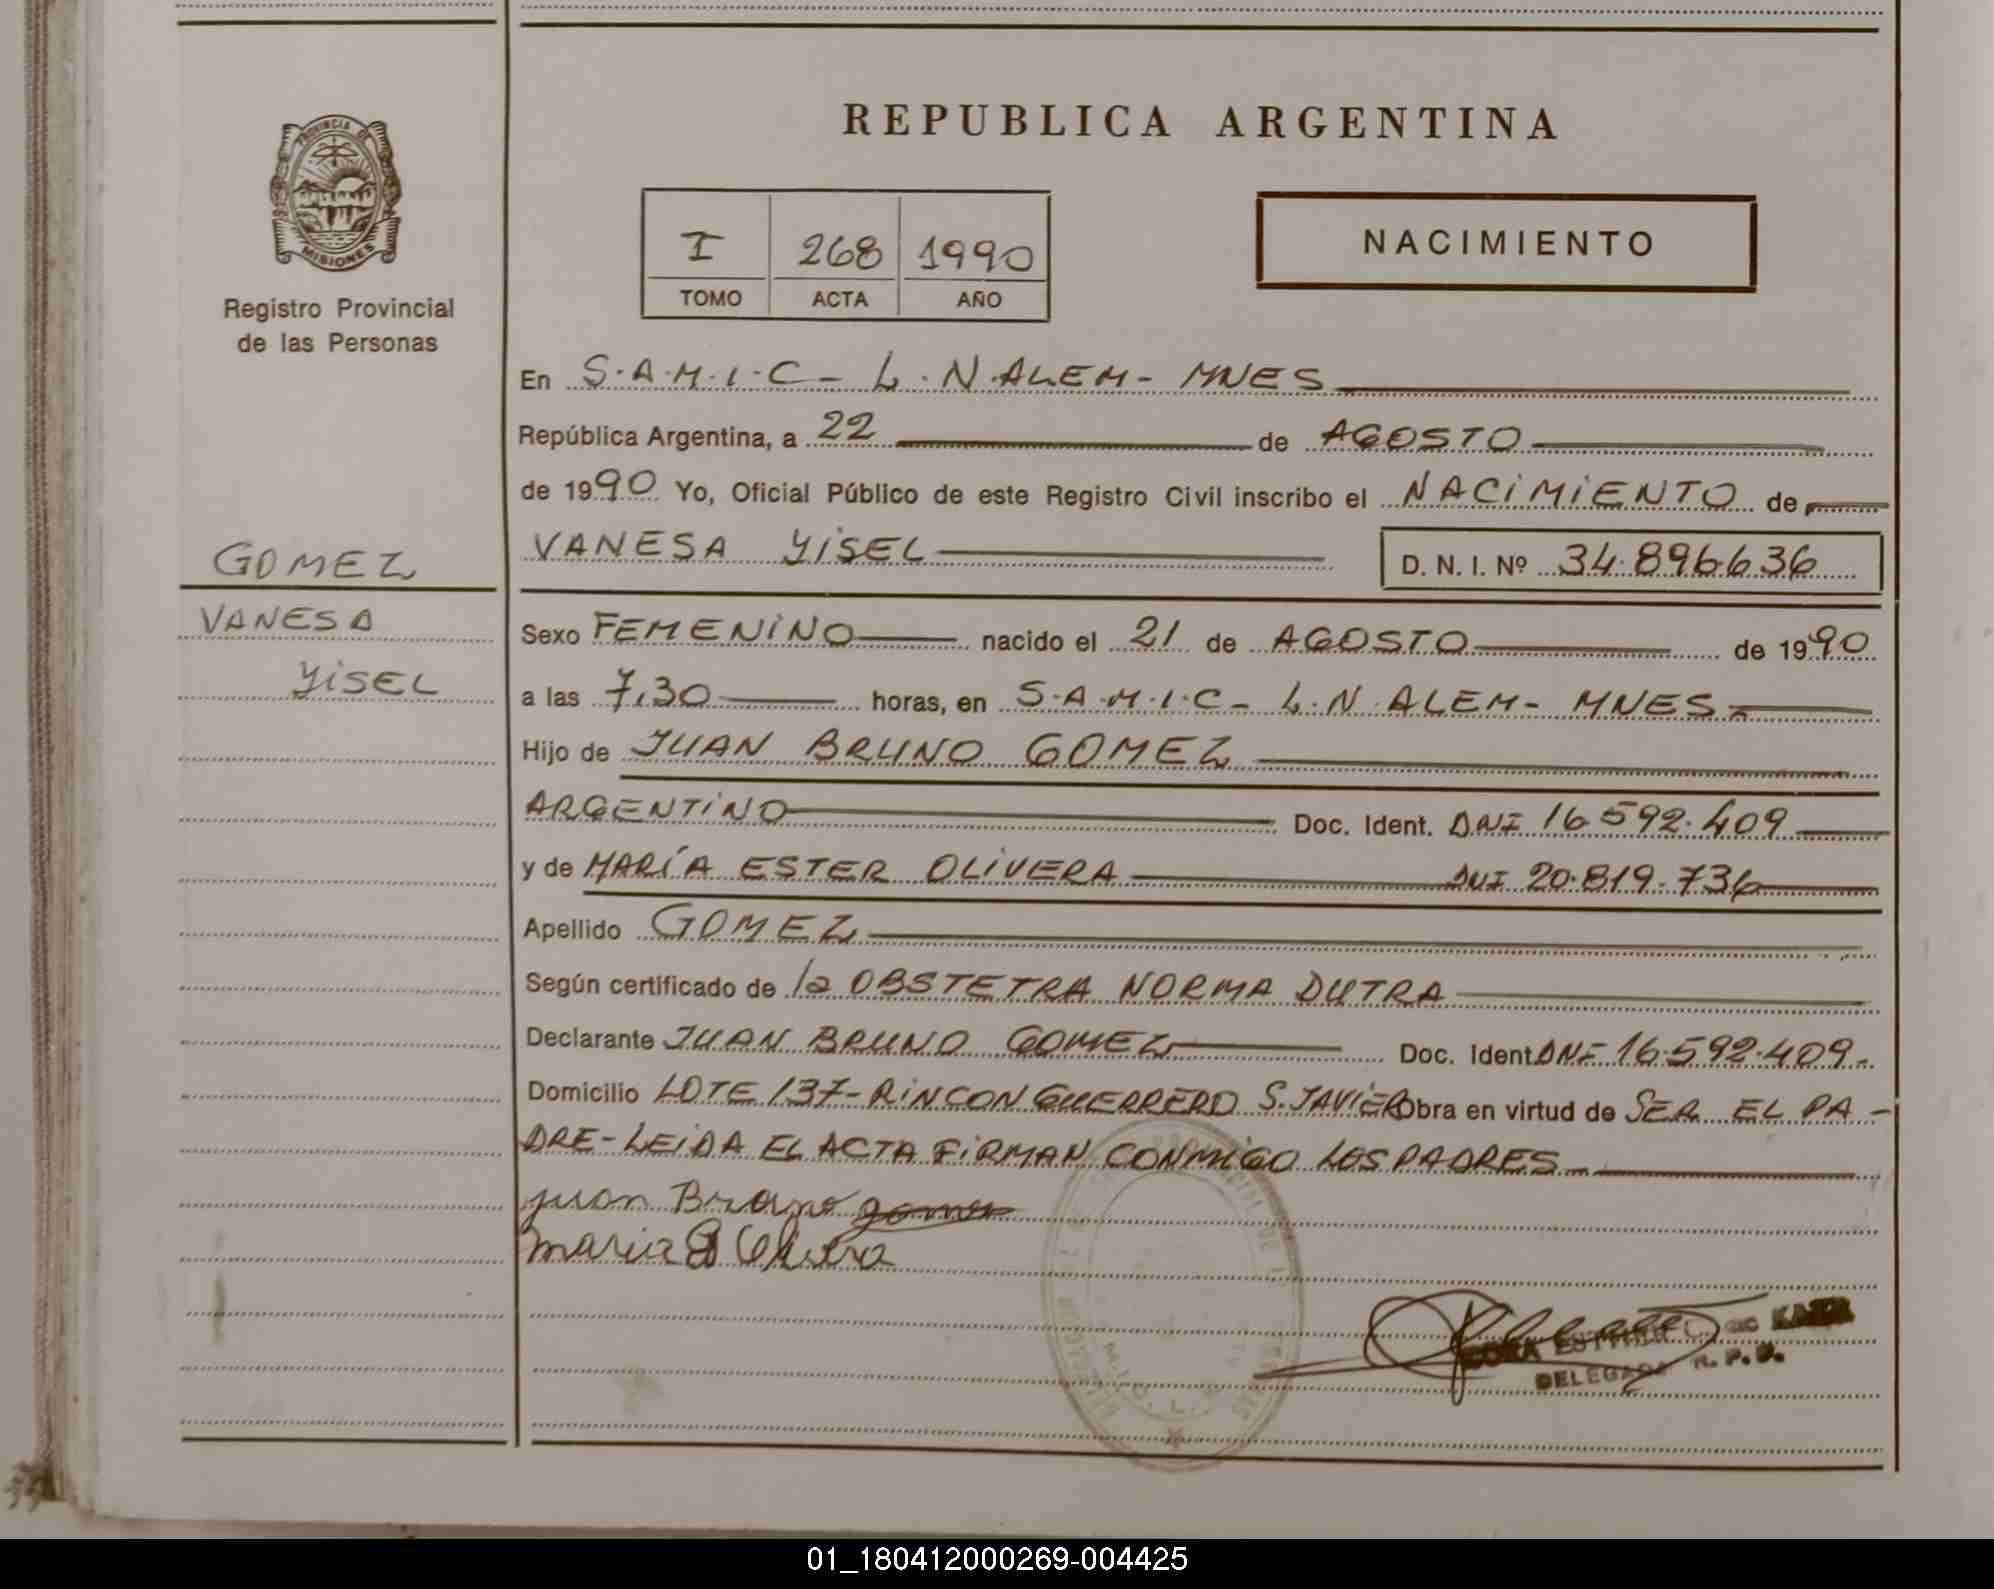 PROVINCIA DE
MISIONES
Registro Provincial
de las Personas
GOMEZ
VANESA
YISEL
REPUBLICA ARGENTINA
I 268 1990
TOMO ACTA AÑO
NACIMIENTO
En S.A.M.I.C - L.N.ALEM - MNES
República Argentina, a 22 de AGOSTO
de 1990 Yo, Oficial Público de este Registro Civil inscribo el NACIMIENTO de
VANESA YISEL D. N. I. Nº 34.896.636
Sexo FEMENINO nacido el 21 de AGOSTO de 1990
a las 7,30 horas, en S.A.M.I.C - L.N.ALEM - MNES -
Hijo de JUAN BRUNO GOMEZ
ARGENTINO Doc. Ident. DNI 16.592.409
y de MARÍA ESTER OLIVERA DNI 20.819.736
Apellido GOMEZ
Según certificado de la OBSTETRA NORMA DUTRA
Declarante JUAN BRUNO GOMEZ Doc. Ident DNI 16.592.409.
Domicilio LOTE 137 - RINCON GUERRERO S. JAVIER Obra en virtud de SER EL PA -
DRE - LEIDA EL ACTA FIRMAN CONMIGO LOS PADRES
juan Bruno gomez
maria E Olivera
DELEGADA R. P. P.
01_180412000269-004425